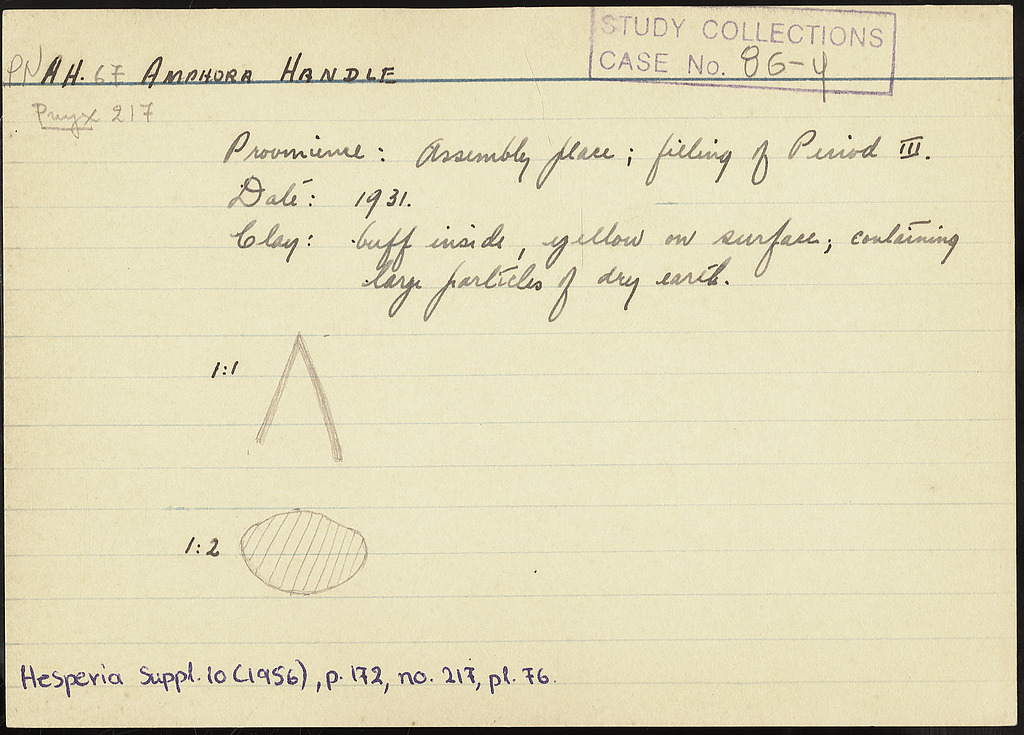 STUDY COLLECTIONS
CASE No. 86-4
PN AH. 67 AMPHORA HANDLE
Pnyx 217
Provnience: Assembly place; filling of Period III.
Date: 1931.
Clay: buff inside, yellow on surface; containing
large particles of dry earth.
1:1
1:2
Hesperia Suppl. 10 (1956), p. 172, no. 217, pl. 76.